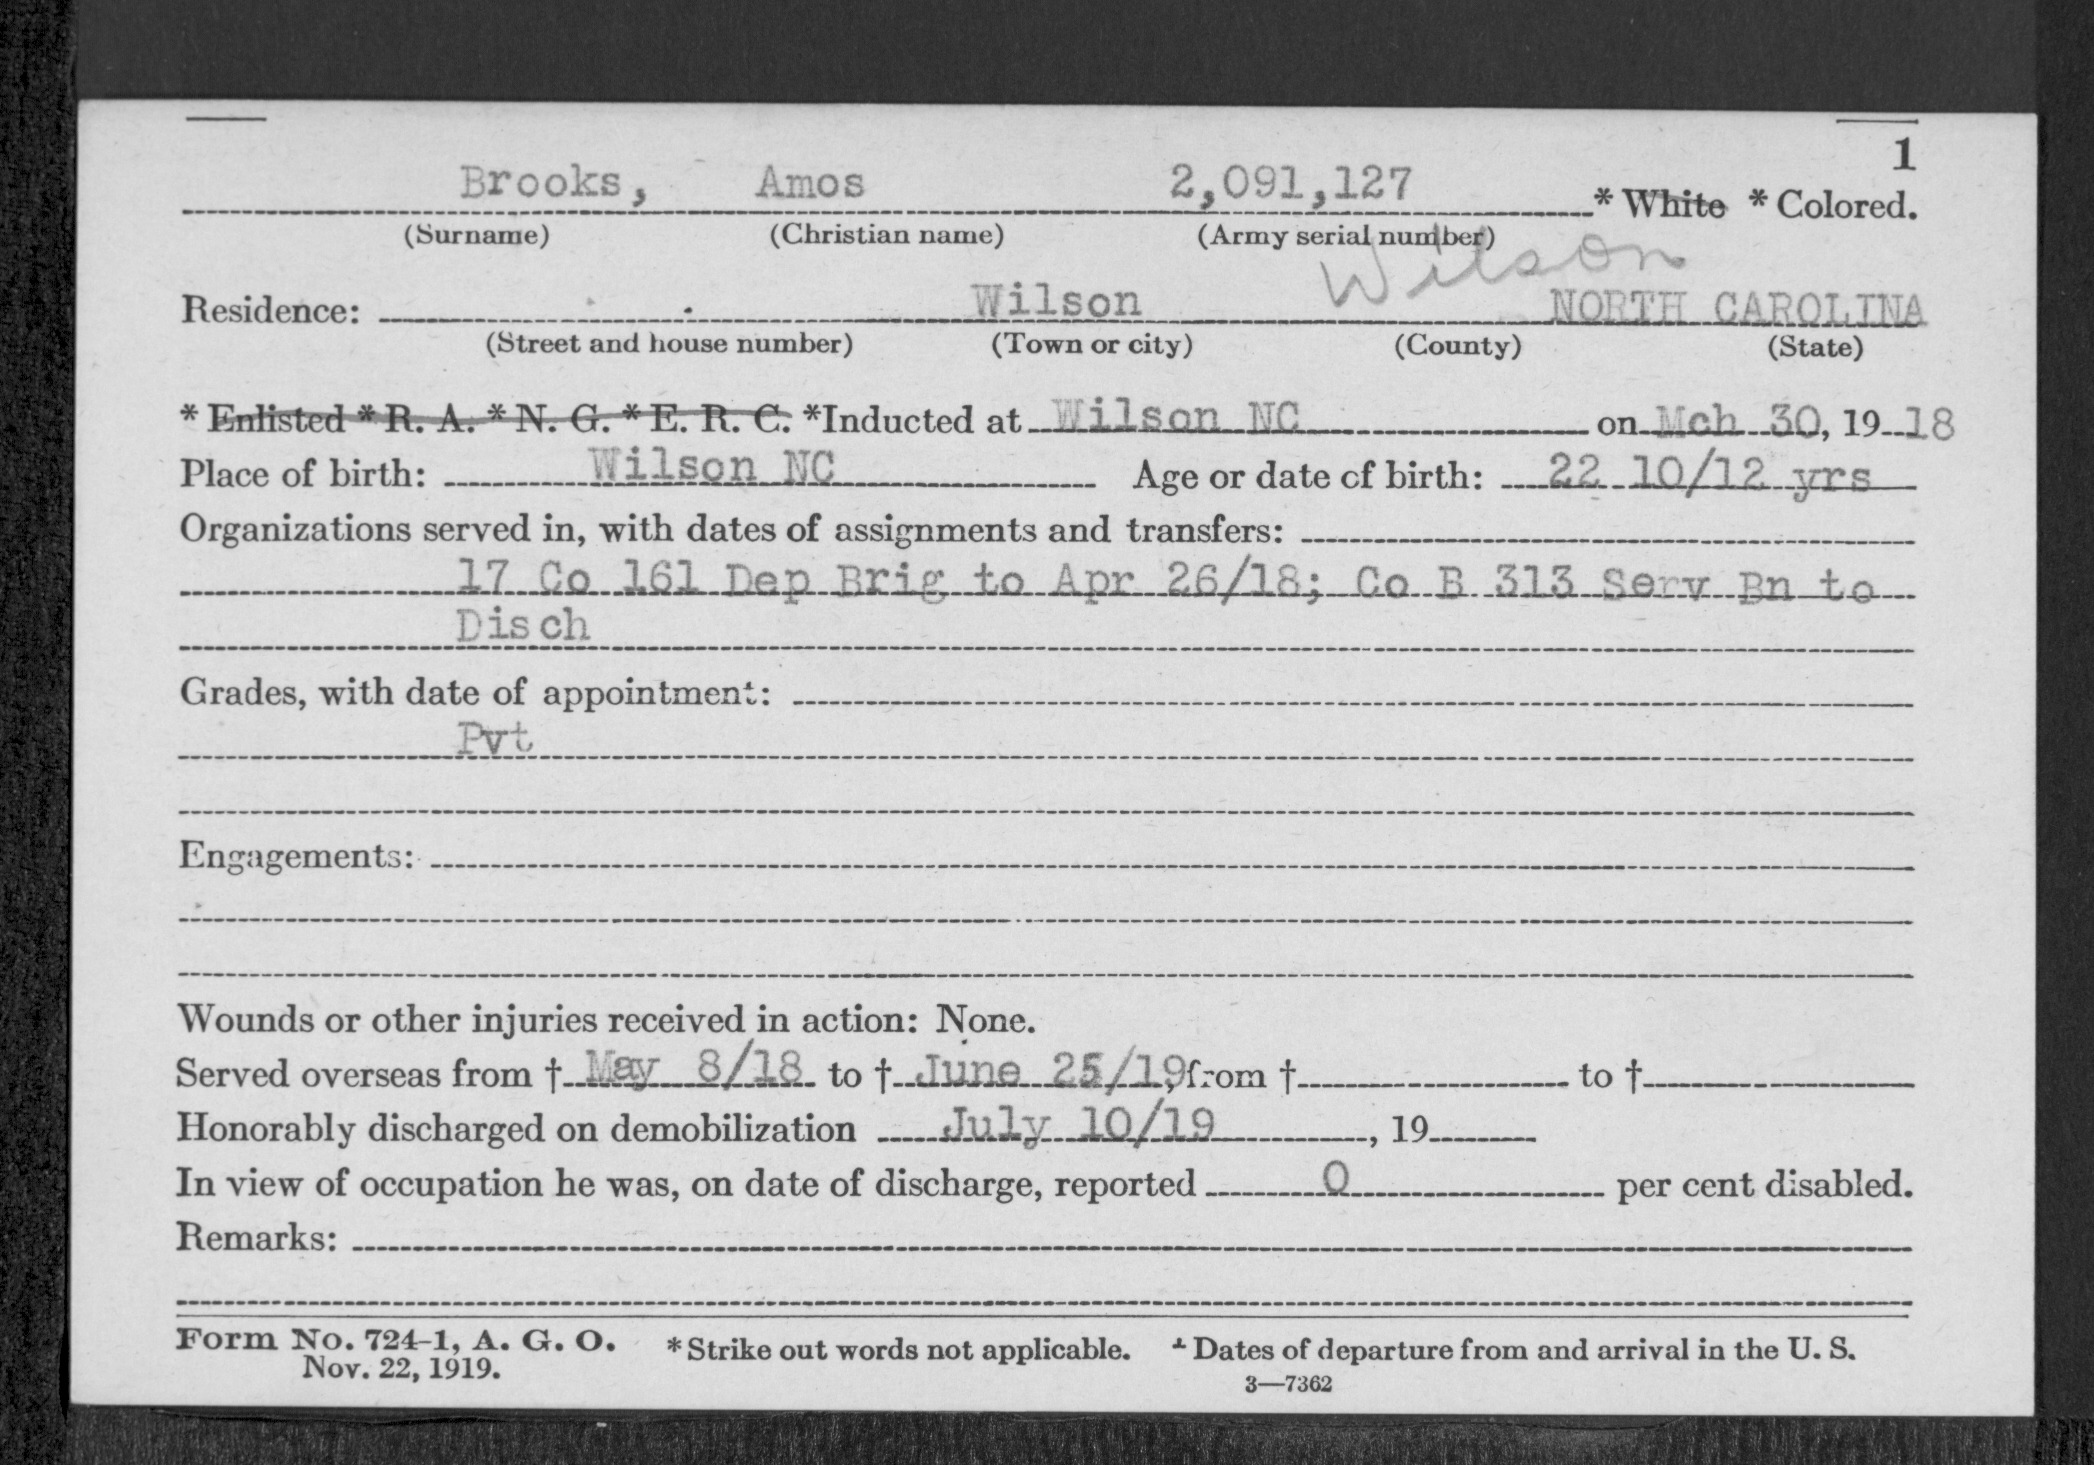 1
Brooks, Amos 2,091,127 * White * Colored.
(Surname) (Christian name) (Army serial number)
Wilson
Residence: Wilson NORTH CAROLINA
(Street and house number) (Town or city) (County) (State)
* Enlisted * R. A. * N. G. * E. R. C. *Inducted at Wilson NC on Mch 30, 19 18
Place of birth: Wilson NC Age or date of birth: 22 10/12 yrs
Organizations served in, with dates of assignments and transfers:
17 Co 161 Dep Brig to Apr 26/18; Co B 313 Serv Bn to
Disch
Grades, with date of appointment:
Pvt
Engagements:
Wounds or other injuries received in action: None.
Served overseas from † May 8/18 to † June 25/19, from † to †
Honorably discharged on demobilization July 10/19, 19
In view of occupation he was, on date of discharge, reported 0 per cent disabled.
Remarks:
Form No. 724-1, A. G. O. * Strike out words not applicable. † Dates of departure from and arrival in the U. S.
Nov. 22, 1919.
3—7362